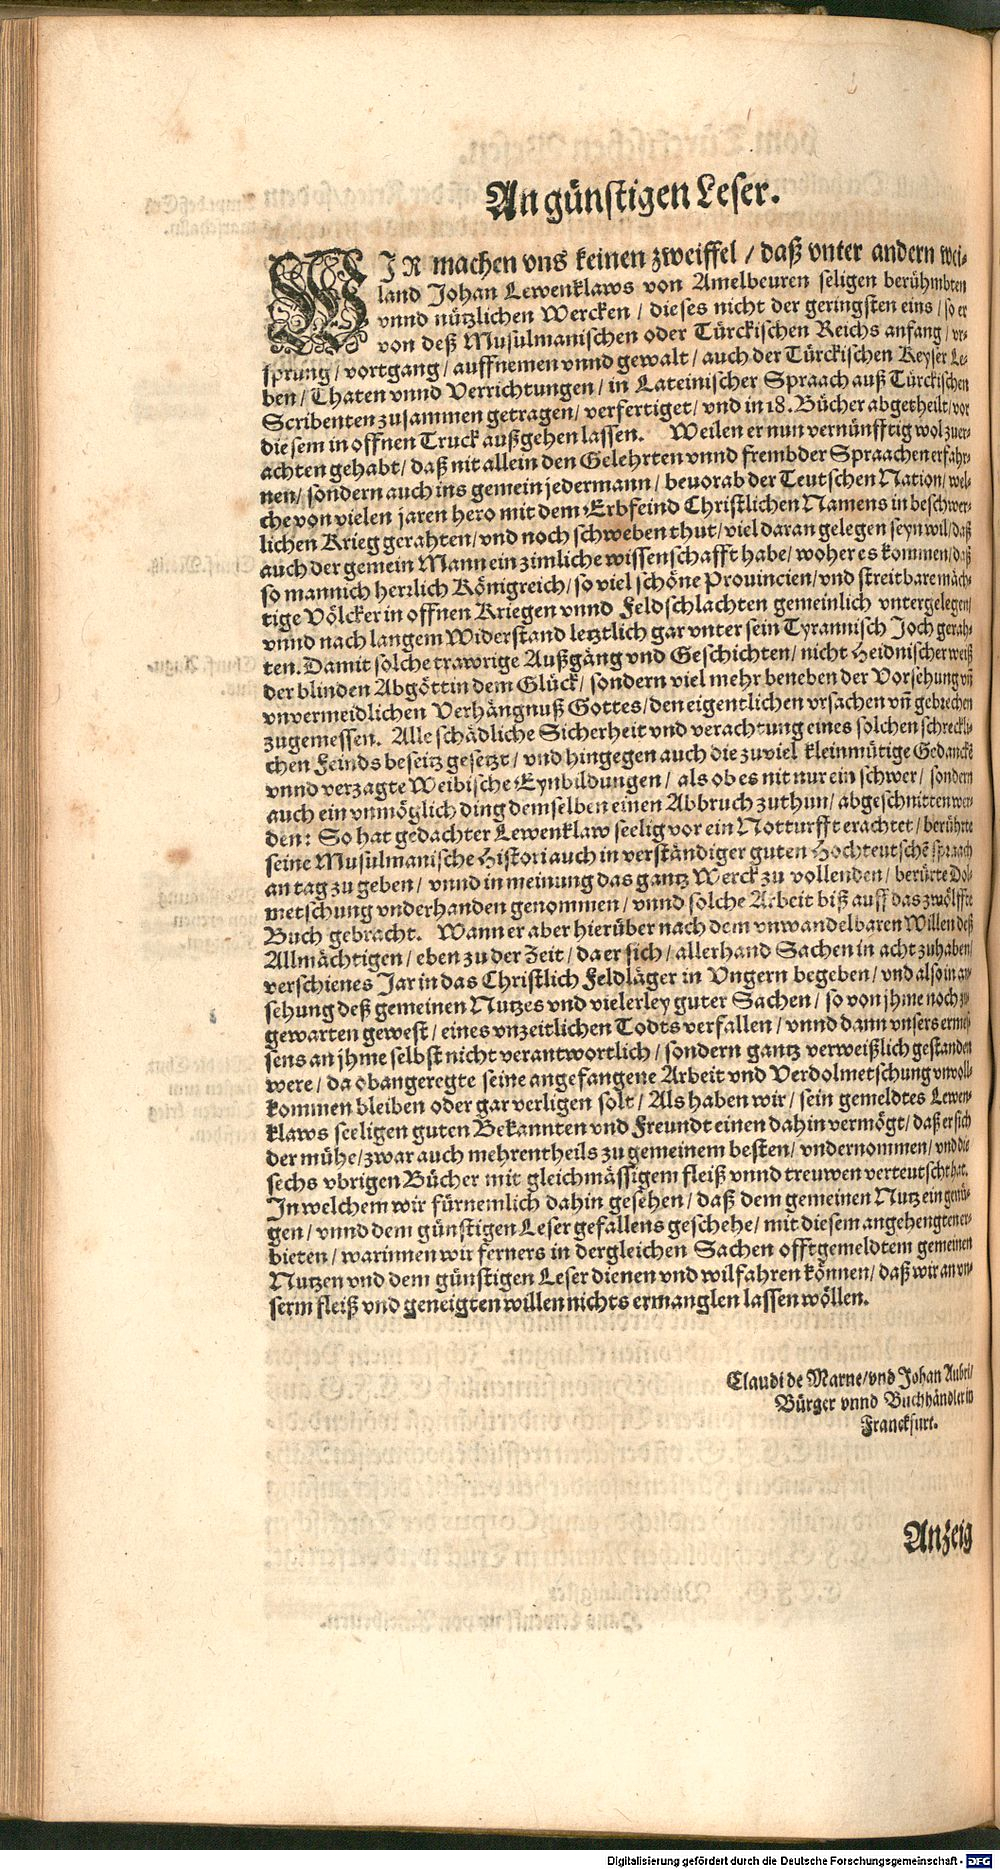 An günstigen Leser.
WIR machen vns keinen zweiffel / daß vnter andern wei-
land Johan Lewenklaws von Amelbeuren seligen berühmbten
vnnd nützlichen Wercken / dieses nicht der geringsten eins / so er
von deß Musulmanischen oder Türckischen Reichs anfang / vr-
sprung / vortgang / auffnemen vnnd gewalt / auch der Türckischen Keyser Le-
ben / Thaten vnnd Verrichtungen / in Lateinischer Spraach auß Türckischen
Scribenten zusammen getragen / verfertiget / vnd in 18. Bücher abgetheilt / vor
diesem in offnen Truck außgehen lassen. Weilen er nun vernünfftig wol zuer-
achten gehabt / daß nit allein den Gelehrten vnnd frembder Spraachen erfahr-
nen / sondern auch ins gemein jedermann / beuorab der Teutschen Nation / wel-
che von vielen jaren hero mit dem Erbfeind Christlichen Namens in beschwer-
lichen Krieg gerahten / vnd noch schweben thut / viel daran gelegen seyn wil / daß
auch der gemein Mann ein zimliche wissenschafft habe / woher es kommen / daß
so mannich herzlich Königreich / so viel schöne Prouincien / vnd streitbare mäch-
tige Völcker in offnen Kriegen vnnd Feldschlachten gemeinlich vntergelegen /
vnnd nach langem Widerstand letztlich gar vnter sein Tyrannisch Joch gerah-
ten. Damit solche trawrige Außgäng vnd Geschichten / nicht Heidnischer weiß
der blinden Abgöttin dem Glück / sondern viel mehr beneben der Vorsehung vñ
vnvermeidlichen Verhängnuß Gottes / den eigentlichen vrsachen vñ gebrechen
zugemessen. Alle schädliche Sicherheit vnd verachtung eines solchen schreckli-
chen Feinds beseitz gesetzt / vnd hingegen auch die zuviel kleinmütige Gedancke
vnnd verzagte Weibische Eynbildungen / als ob es nit nur ein schwer / sondern
auch ein vnmöglich ding demselben einen Abbruch zuthun / abgeschnitten wer-
den: So hat gedachter Lewenklaw seelig vor ein Notturfft erachtet / berührte
seine Musulmanische Histori auch in verständiger guten Hochteutschē spraach
an tag zu geben / vnnd in meinung das gantz Werck zu vollenden / berürte Dol-
metschung vnderhanden genommen / vnnd solche Arbeit biß auff das zwölffte
Buch gebracht. Wann er aber hierüber nach dem vnwandelbaren Willen deß
Allmächtigen / eben zu der Zeit / da er sich / allerhand Sachen in acht zuhaben /
verschienes Jar in das Christlich Feldläger in Vngern begeben / vnd also in an-
sehung deß gemeinen Nutzes vnd vielerley guter Sachen / so von jhme noch zu
gewarten gewest / eines vnzeitlichen Todts verfallen / vnnd dann vnsers ermes-
sens an jhme selbst nicht verantwortlich / sondern gantz verweißlich gestanden
were / da obangeregte seine angefangene Arbeit vnd Verdolmetschung vnvoll-
kommen bleiben oder gar verligen solt / Als haben wir / sein gemeldtes Lewen-
klaws seeligen guten Bekannten vnd Freundt einen dahin vermögt / daß er sich
der mühe / zwar auch mehrentheils zu gemeinem besten / vndernommen / vnd die
sechs vbrigen Bücher mit gleichmässigem fleiß vnnd treuwen verteutscht hat.
In welchem wir fürnemlich dahin gesehen / daß dem gemeinen Nutz ein genü-
gen / vnnd dem günstigen Leser gefallens geschehe / mit diesem angehengten er-
bieten / warinnen wir ferners in dergleichen Sachen offtgemeldtem gemeinen
Nutzen vnd dem günstigen Leser dienen vnd wilfahren können / daß wir an vn-
serm fleiß vnd geneigten willen nichts ermanglen lassen wöllen.
Claudi de Marne / vnd Johan Aubri /
Bürger vnnd Buchhändler in
Franckfurt.
Anzeig
Digitalisierung gefördert durch die Deutsche Forschungsgemeinschaft - DFG